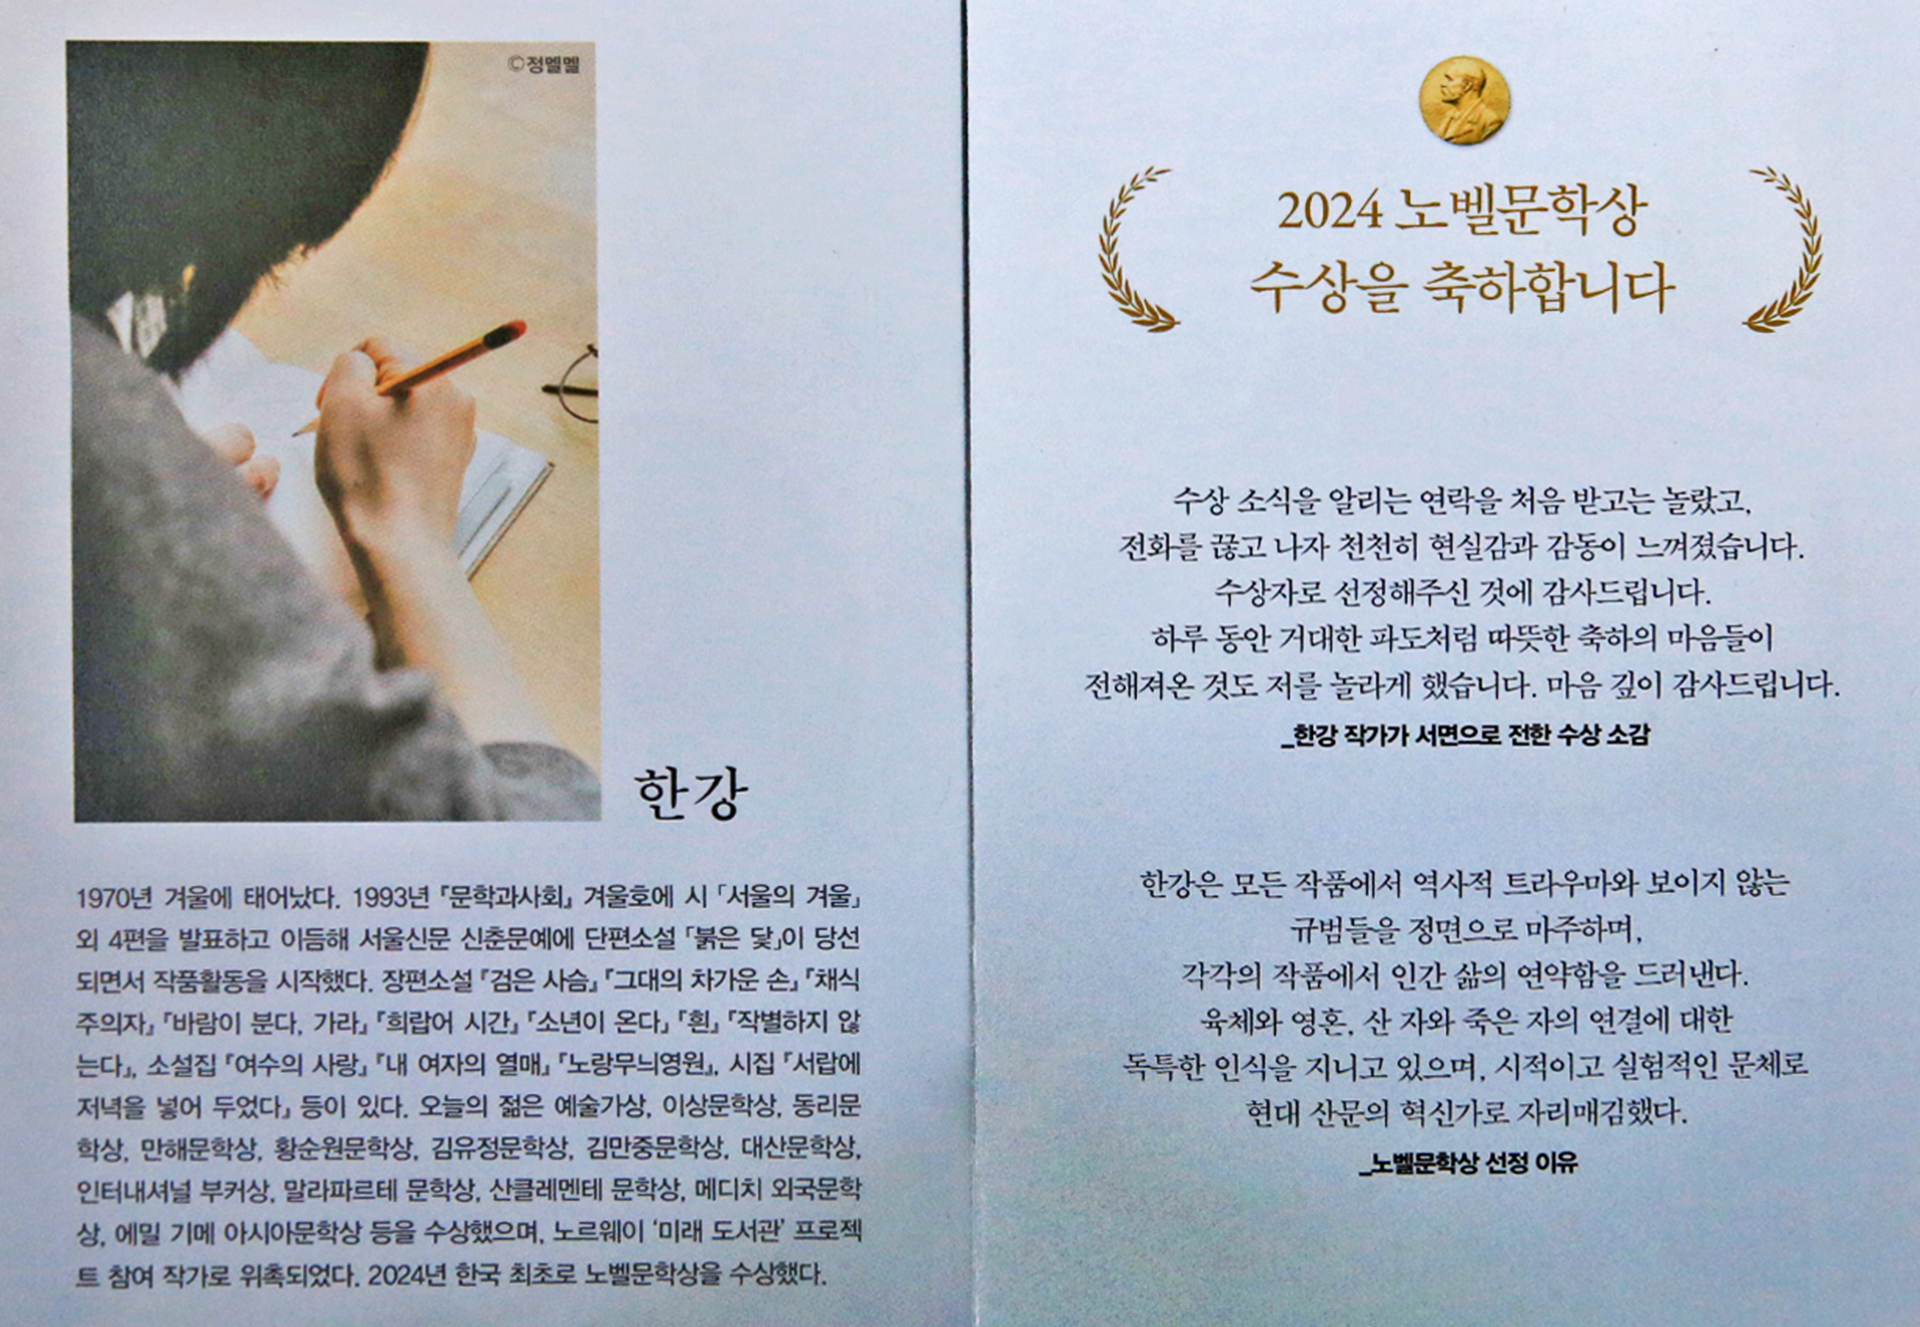 ©정멜멜
한강
1970년 겨울에 태어났다. 1993년 『문학과사회』 겨울호에 시 「서울의 겨울」
외 4편을 발표하고 이듬해 서울신문 신춘문예에 단편소설 「붉은 닻」이 당선
되면서 작품활동을 시작했다. 장편소설 『검은 사슴』 『그대의 차가운 손』 『채식
주의자』 『바람이 분다, 가라』 『희랍어 시간』 『소년이 온다』 『흰』 『작별하지 않
는다』, 소설집 『여수의 사랑』 『내 여자의 열매』 『노랑무늬영원』, 시집 『서랍에
저녁을 넣어 두었다』 등이 있다. 오늘의 젊은 예술가상, 이상문학상, 동리문
학상, 만해문학상, 황순원문학상, 김유정문학상, 김만중문학상, 대산문학상,
인터내셔널 부커상, 말라파르테 문학상, 산클레멘테 문학상, 메디치 외국문학
상, 에밀 기메 아시아문학상 등을 수상했으며, 노르웨이 ‘미래 도서관’ 프로젝
트 참여 작가로 위촉되었다. 2024년 한국 최초로 노벨문학상을 수상했다.
2024 노벨문학상
수상을 축하합니다
수상 소식을 알리는 연락을 처음 받고는 놀랐고,
전화를 끊고 나자 천천히 현실감과 감동이 느껴졌습니다.
수상자로 선정해주신 것에 감사드립니다.
하루 동안 거대한 파도처럼 따뜻한 축하의 마음들이
전해져온 것도 저를 놀라게 했습니다. 마음 깊이 감사드립니다.
_한강 작가가 서면으로 전한 수상 소감
한강은 모든 작품에서 역사적 트라우마와 보이지 않는
규범들을 정면으로 마주하며,
각각의 작품에서 인간 삶의 연약함을 드러낸다.
육체와 영혼, 산 자와 죽은 자의 연결에 대한
독특한 인식을 지니고 있으며, 시적이고 실험적인 문체로
현대 산문의 혁신가로 자리매김했다.
_노벨문학상 선정 이유